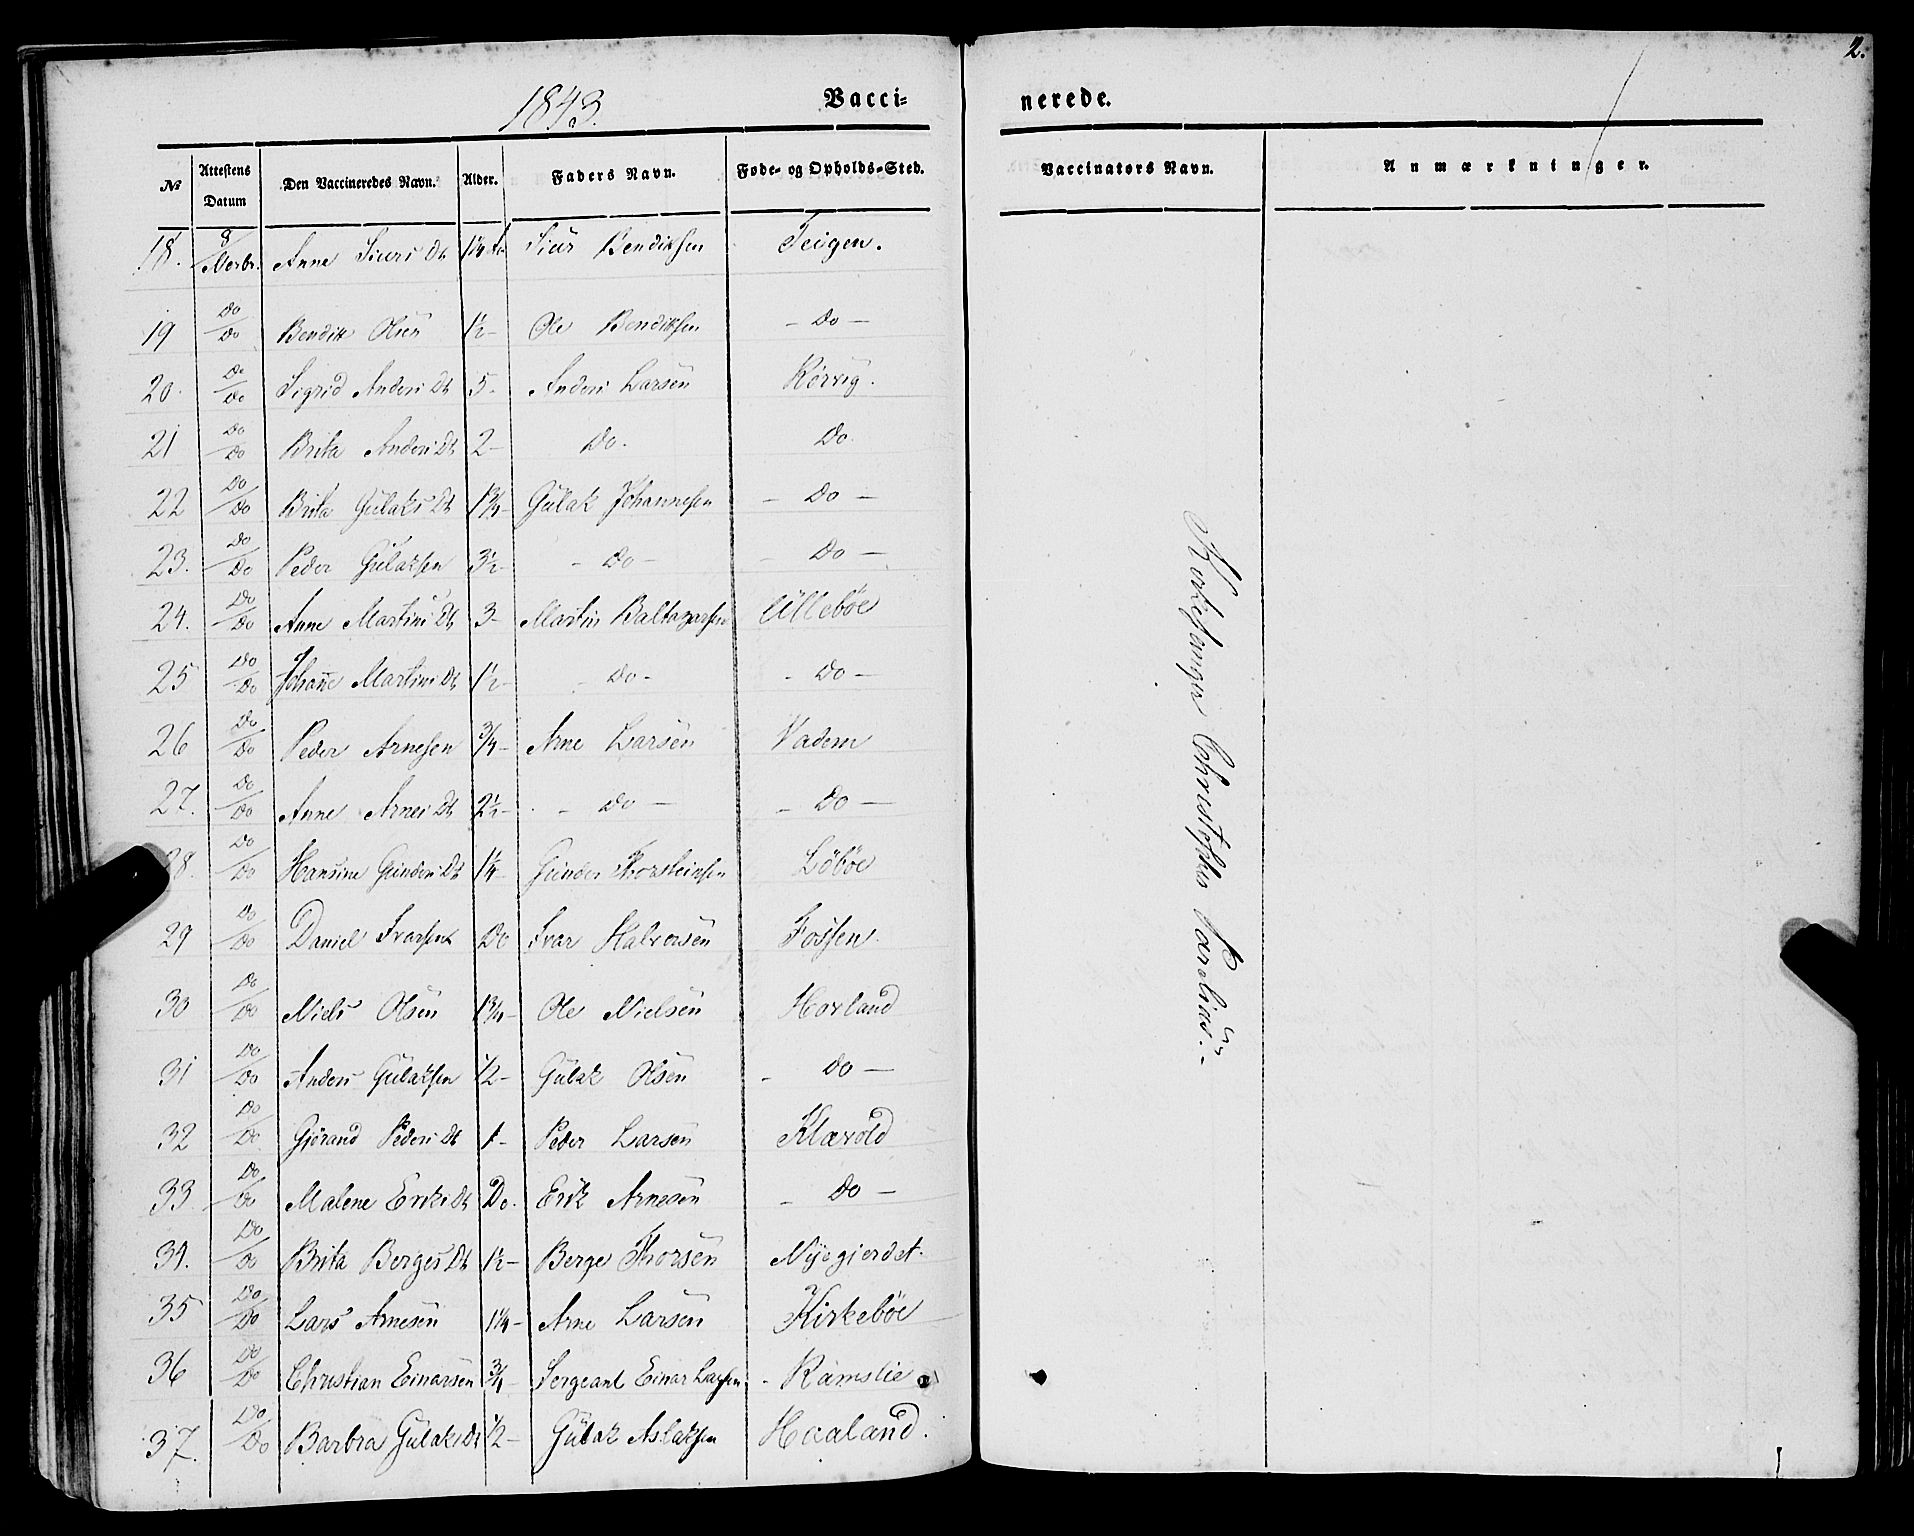 2.
1843.
Vacci-
nerede.
№ | Attestens Datum | Den Vaccineredes Navn. | Alder. | Faders Navn. | Føde- og Opholds-Sted. | Vaccinators Navn. | Anmærkninger.
18. 8/Novbr. Anne Siurs Dt 1 1/4 Siur Bendiksen Teigen.
19 Do/Do Bendik Olsen 1 1/2 - Ole Bendiksen - Do -
20. Do/Do Sigrid Anders Dt 5 - Anders Larsen Rörvig.
21 Do/Do Brita Anders Dt 2 - Do. Do.
22 Do/Do Brita Gülaks Dt 1 3/4 - Gülak Johannesen - Do -
23. Do/Do Peder Gülaksen 3 1/2 - - Do - - Do -
24. Do/Do Anne Martins Dt 3 - Martin Baltazarsen Ullebøe
25 Do/Do Johanne Martins Dt 1/2 - - Do - - Do -
26 Do/Do Peder Arnesen 3/4 - Arne Larsen Vadem
27. Do/Do Anne Arnes Dt 2 1/2 - - Do - - Do -
28. Do/Do Hansine Günders Dt 1 1/4 - Günder Thorsteinsen Löbøe
29 Do/Do Daniel Ivarsen Do Ivar Halvorsen Fossen.
30 Do/Do Niels Olsen 1 3/4 - Ole Nielsen Horland
31 Do/Do Anders Gülaksen 1/2 - Gülak Olsen - Do -
32 Do/Do Gjörand Peders Dt 1 - Peder Larsen Klævold
33 Do/Do Malene Eriks Dt Do. Erik Arnesen - Do -
34. Do/Do Brita Berges Dt 1 1/2 - Berge Thorsen Nyegjerdet.
35 Do/Do Lars Arnesen 1 1/4 - Arne Larsen Kirkebøe
36 Do/Do Christian Einarsen 3/4 - Sergeant Einar Larsen - Ramslie
37. Do/Do Barbra Gülaks Dt 1/2 - Gülak Aslaksen Haaland.
Kirkesanger Christopher